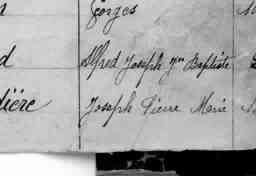 Forges
d Alfred Joseph Jn Baptiste
dière Joseph Pierre Marie